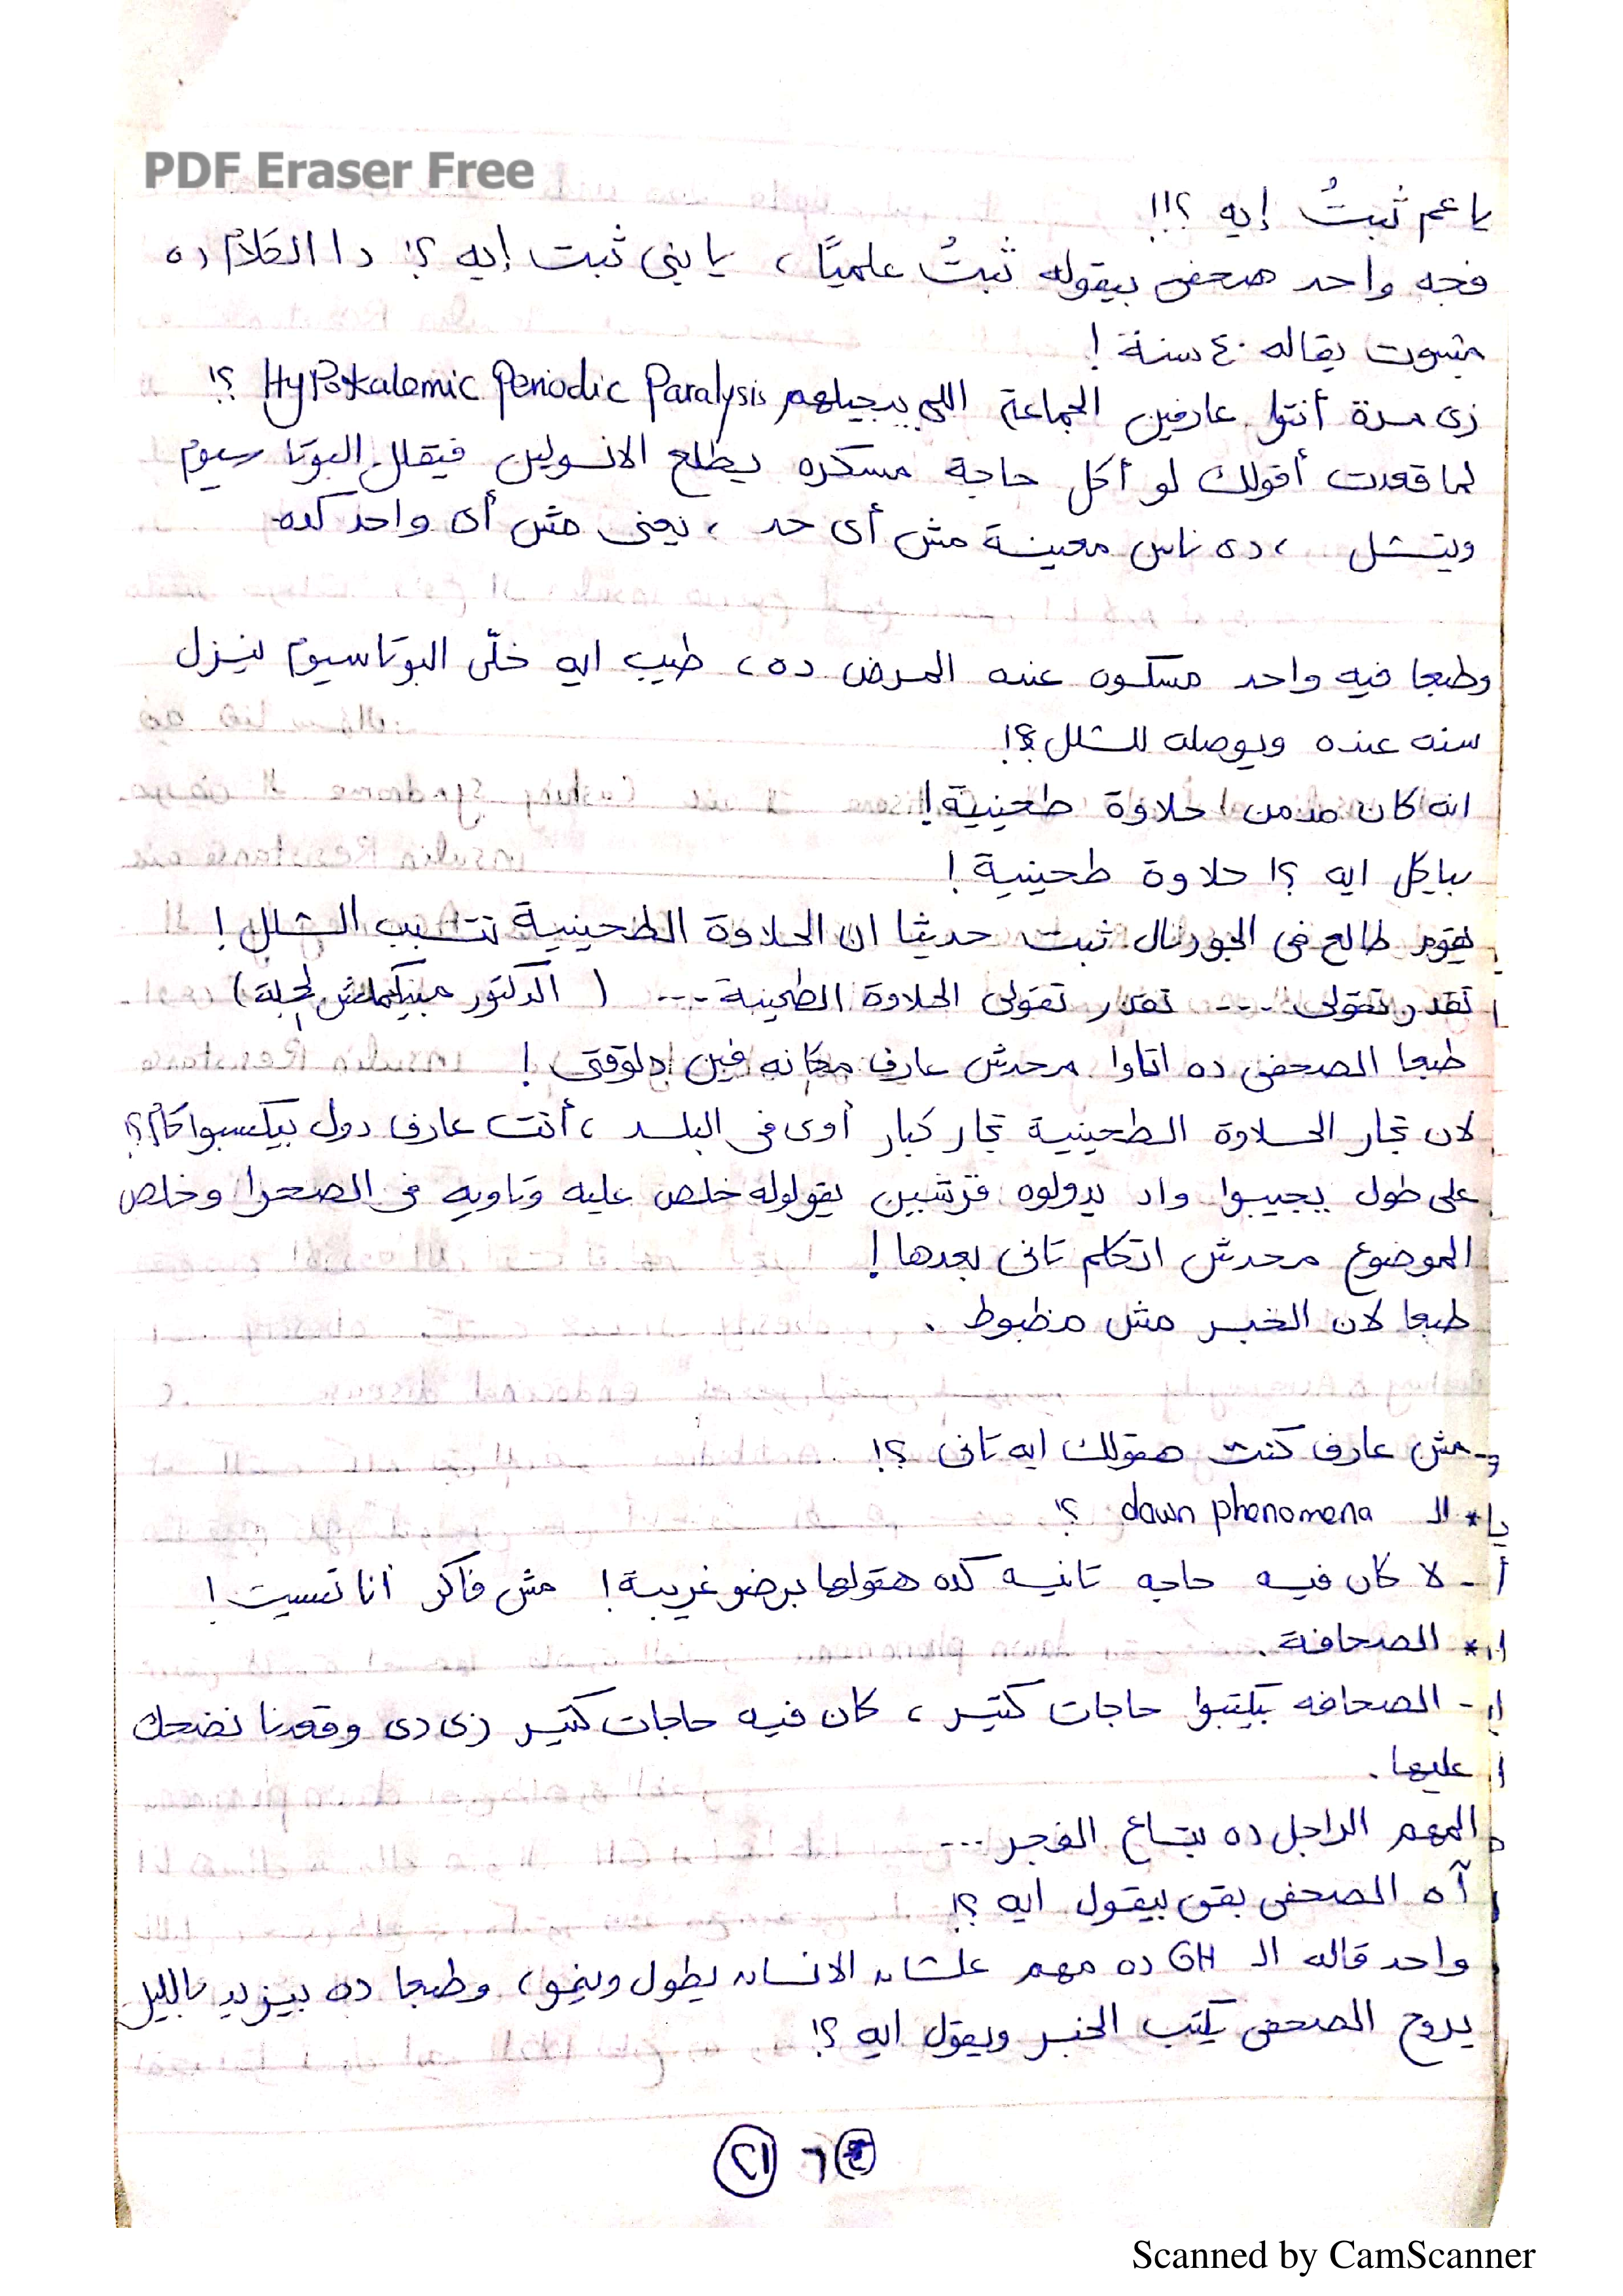 PDF Eraser Free
يا عم ثبتُ إيه ؟!!!
فجه واحد صحفى بيقوله ثبتُ علميًا ، يا بنى ثبت إيه ؟! دا الكلام ده
مثبوت بقاله ٤٠ سنة !
زى مرة أنتوا عارفين الجماعة اللى بيجيلهم Hypokalemic Periodic Paralysis ؟!
لما قعدت أقولك لو أكل حاجة مسكره يطلع الانسولين فيقلل البوتاسيوم
ويتشل ، دى ناس معينة مش أى حد ، يعنى مش أى واحد كده
وطبعا فيه واحد مسكوه عنده المرض ده ، طيب ايه خلّى البوتاسيوم ينزل
سنه عنده ويوصله للشلل ؟!
انه كان مدمن حلاوة طحينية !
بياكل ايه ؟! حلاوة طحينية !
يقوم طالع فى الجورنال ثبت حديثا ان الحلاوة الطحينية تتسبب الشلل !
تقدر تقولى .... تقدر تقولى الحلاوة الطحينية ... ( الدكتور مبيكملش الجملة )
طبعا الصحفى ده اتاوا محدش عارف مكانه فين دلوقتى !
لان تجار الحلاوة الطحينية تجار كبار أوى فى البلد ، أنت عارف دول بيكسبوا كام ؟!
على طول يجيبوا واد يدولوه قرشين يقولوله خلص عليه وتاويه فى الصحرا وخلص
الموضوع محدش اتكلم تانى بعدها !
طبعا لان الخبر مش مظبوط .
- مش عارف كنت هقولك ايه تانى ؟!
* الـ dawn phenomena ؟!
- لا كان فيه حاجه تانيه كده هقولها برضو غريبة ! مش فاكر أنا نسيت !
* الصحافة .
- الصحافه بيكتبوا حاجات كتير ، كان فيه حاجات كتير زى دى وقعدنا نضحك
عليها .
المهم الراجل ده بتاع الفجر ...
آه الصحفى بقى بيقول ايه ؟!
واحد قاله الـ GH ده مهم علشان الانسان يطول وينمو ، وطبعا ده بيزيد بالليل
يروح الصحفى يكتب الخبر ويقول ايه ؟!
٢١
Scanned by CamScanner